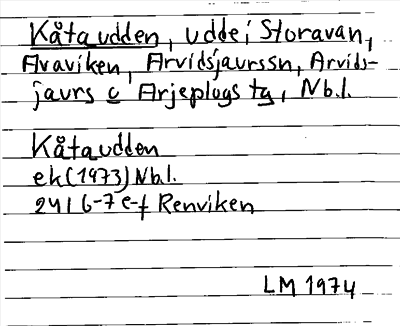 Kåtaudden, udde i Storavan,
Avaviken, Arvidsjaurssn, Arvids-
jaurs o Arjeplogs tg, Nb.l.
Kåtaudden
ek (1973) Nb.l.
24I 6-7 e-f Renviken
LM 1974